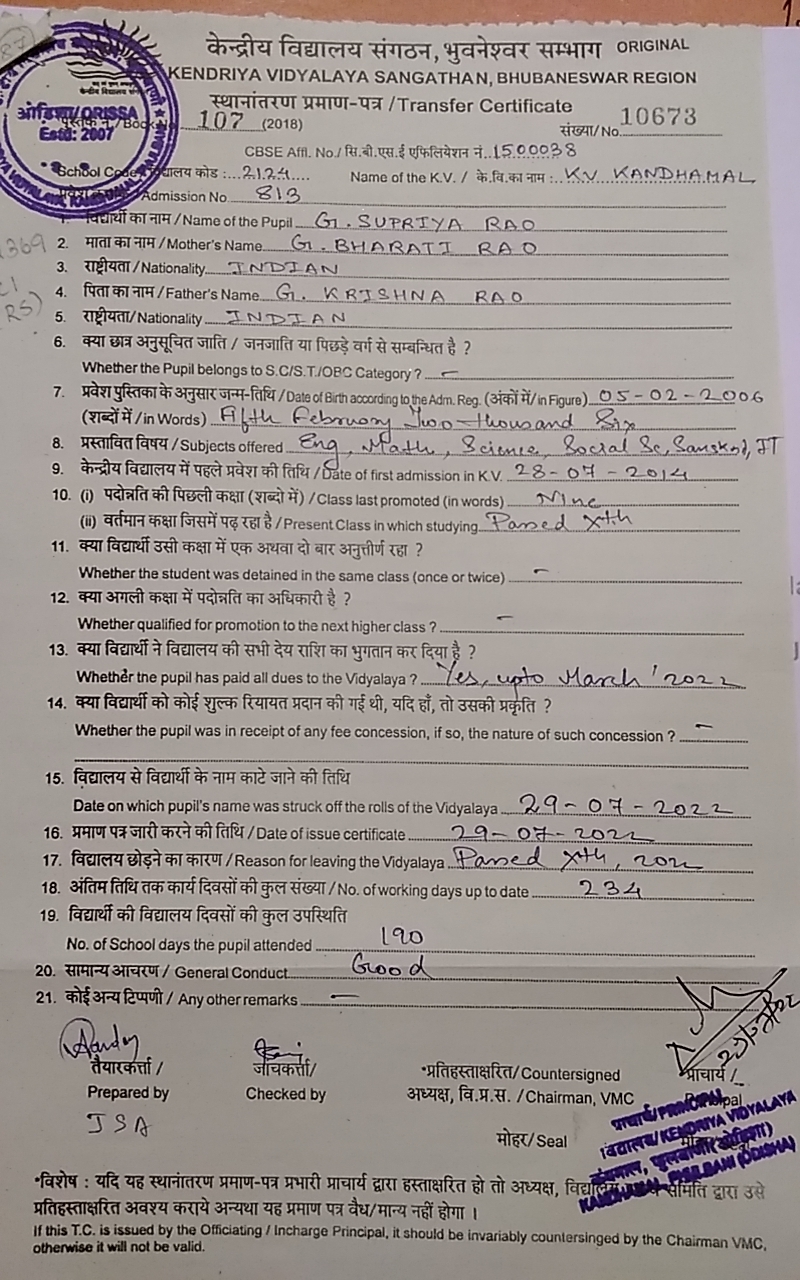 केन्द्रीय विद्यालय संगठन, भुवनेश्वर सम्भाग ORIGINAL
KENDRIYA VIDYALAYA SANGATHAN, BHUBANESWAR REGION
स्थानांतरण प्रमाण-पत्र / Transfer Certificate
ओडिशा/ORISSA
Estd: 2007
पुस्तक नं./Book No. 107 (2018) संख्या/No. 10673
CBSE Affl. No./ सि.बी.एस.ई एफिलियेशन नं. 1500038
School Code/ विद्यालय कोड :.. 2124 Name of the K.V. / के.वि.का नाम :.. K.V. KANDHAMAL
Admission No. 813
1. विद्यार्थी का नाम / Name of the Pupil G. SUPRIYA RAO
2. माता का नाम / Mother's Name G. BHARATI RAO
3. राष्ट्रीयता / Nationality INDIAN
4. पिता का नाम / Father's Name G. KRISHNA RAO
5. राष्ट्रीयता / Nationality INDIAN
6. क्या छात्र अनुसूचित जाति / जनजाति या पिछड़े वर्ग से सम्बन्धित है ?
Whether the Pupil belongs to S.C/S.T./OBC Category ? –
7. प्रवेश पुस्तिका के अनुसार जन्म-तिथि / Date of Birth according to the Adm. Reg. (अंकों में/in Figure) 05-02-2006
(शब्दों में / in Words) Fifth February Two-thousand Six
8. प्रस्तावित विषय / Subjects offered Eng, Math, Science, Social Sc, Sanskrit, IT
9. केन्द्रीय विद्यालय में पहले प्रवेश की तिथि / Date of first admission in K.V. 28-07-2014
10. (i) पदोन्नति की पिछली कक्षा (शब्दो में) / Class last promoted (in words) Nine
(ii) वर्तमान कक्षा जिसमें पढ़ रहा है / Present Class in which studying Passed Xth
11. क्या विद्यार्थी उसी कक्षा में एक अथवा दो बार अनुत्तीर्ण रहा ?
Whether the student was detained in the same class (once or twice) –
12. क्या अगली कक्षा में पदोन्नति का अधिकारी है ?
Whether qualified for promotion to the next higher class ? –
13. क्या विद्यार्थी ने विद्यालय की सभी देय राशि का भुगतान कर दिया है ?
Whether the pupil has paid all dues to the Vidyalaya ? Yes, upto March '2022
14. क्या विद्यार्थी को कोई शुल्क रियायत प्रदान की गई थी, यदि हाँ, तो उसकी प्रकृति ?
Whether the pupil was in receipt of any fee concession, if so, the nature of such concession ? –
15. विद्यालय से विद्यार्थी के नाम काटे जाने की तिथि
Date on which pupil's name was struck off the rolls of the Vidyalaya 29-07-2022
16. प्रमाण पत्र जारी करने की तिथि / Date of issue certificate 29-07-2022
17. विद्यालय छोड़ने का कारण / Reason for leaving the Vidyalaya Passed Xth, 2022
18. अंतिम तिथि तक कार्य दिवसों की कुल संख्या / No. of working days up to date 234
19. विद्यार्थी की विद्यालय दिवसों की कुल उपस्थिति
No. of School days the pupil attended 190
20. सामान्य आचरण / General Conduct Good
21. कोई अन्य टिप्पणी / Any other remarks –
तैयारकर्त्ता / जाँचकर्त्ता/ *प्रतिहस्ताक्षरित/ Countersigned प्राचार्य /
Prepared by Checked by अध्यक्ष, वि.प्र.स. / Chairman, VMC Principal
JSA
मोहर/ Seal
प्राचार्य/PRINCIPAL
विद्यालय/KENDRIYA VIDYALAYA
KANDHAMAL, PHULBANI (ODISHA)
*विशेष : यदि यह स्थानांतरण प्रमाण-पत्र प्रभारी प्राचार्य द्वारा हस्ताक्षरित हो तो अध्यक्ष, विद्यालय समिति द्वारा उसे
प्रतिहस्ताक्षरित अवश्य कराये अन्यथा यह प्रमाण पत्र वैध/मान्य नहीं होगा ।
If this T.C. is issued by the Officiating / Incharge Principal, it should be invariably countersinged by the Chairman VMC,
otherwise it will not be valid.